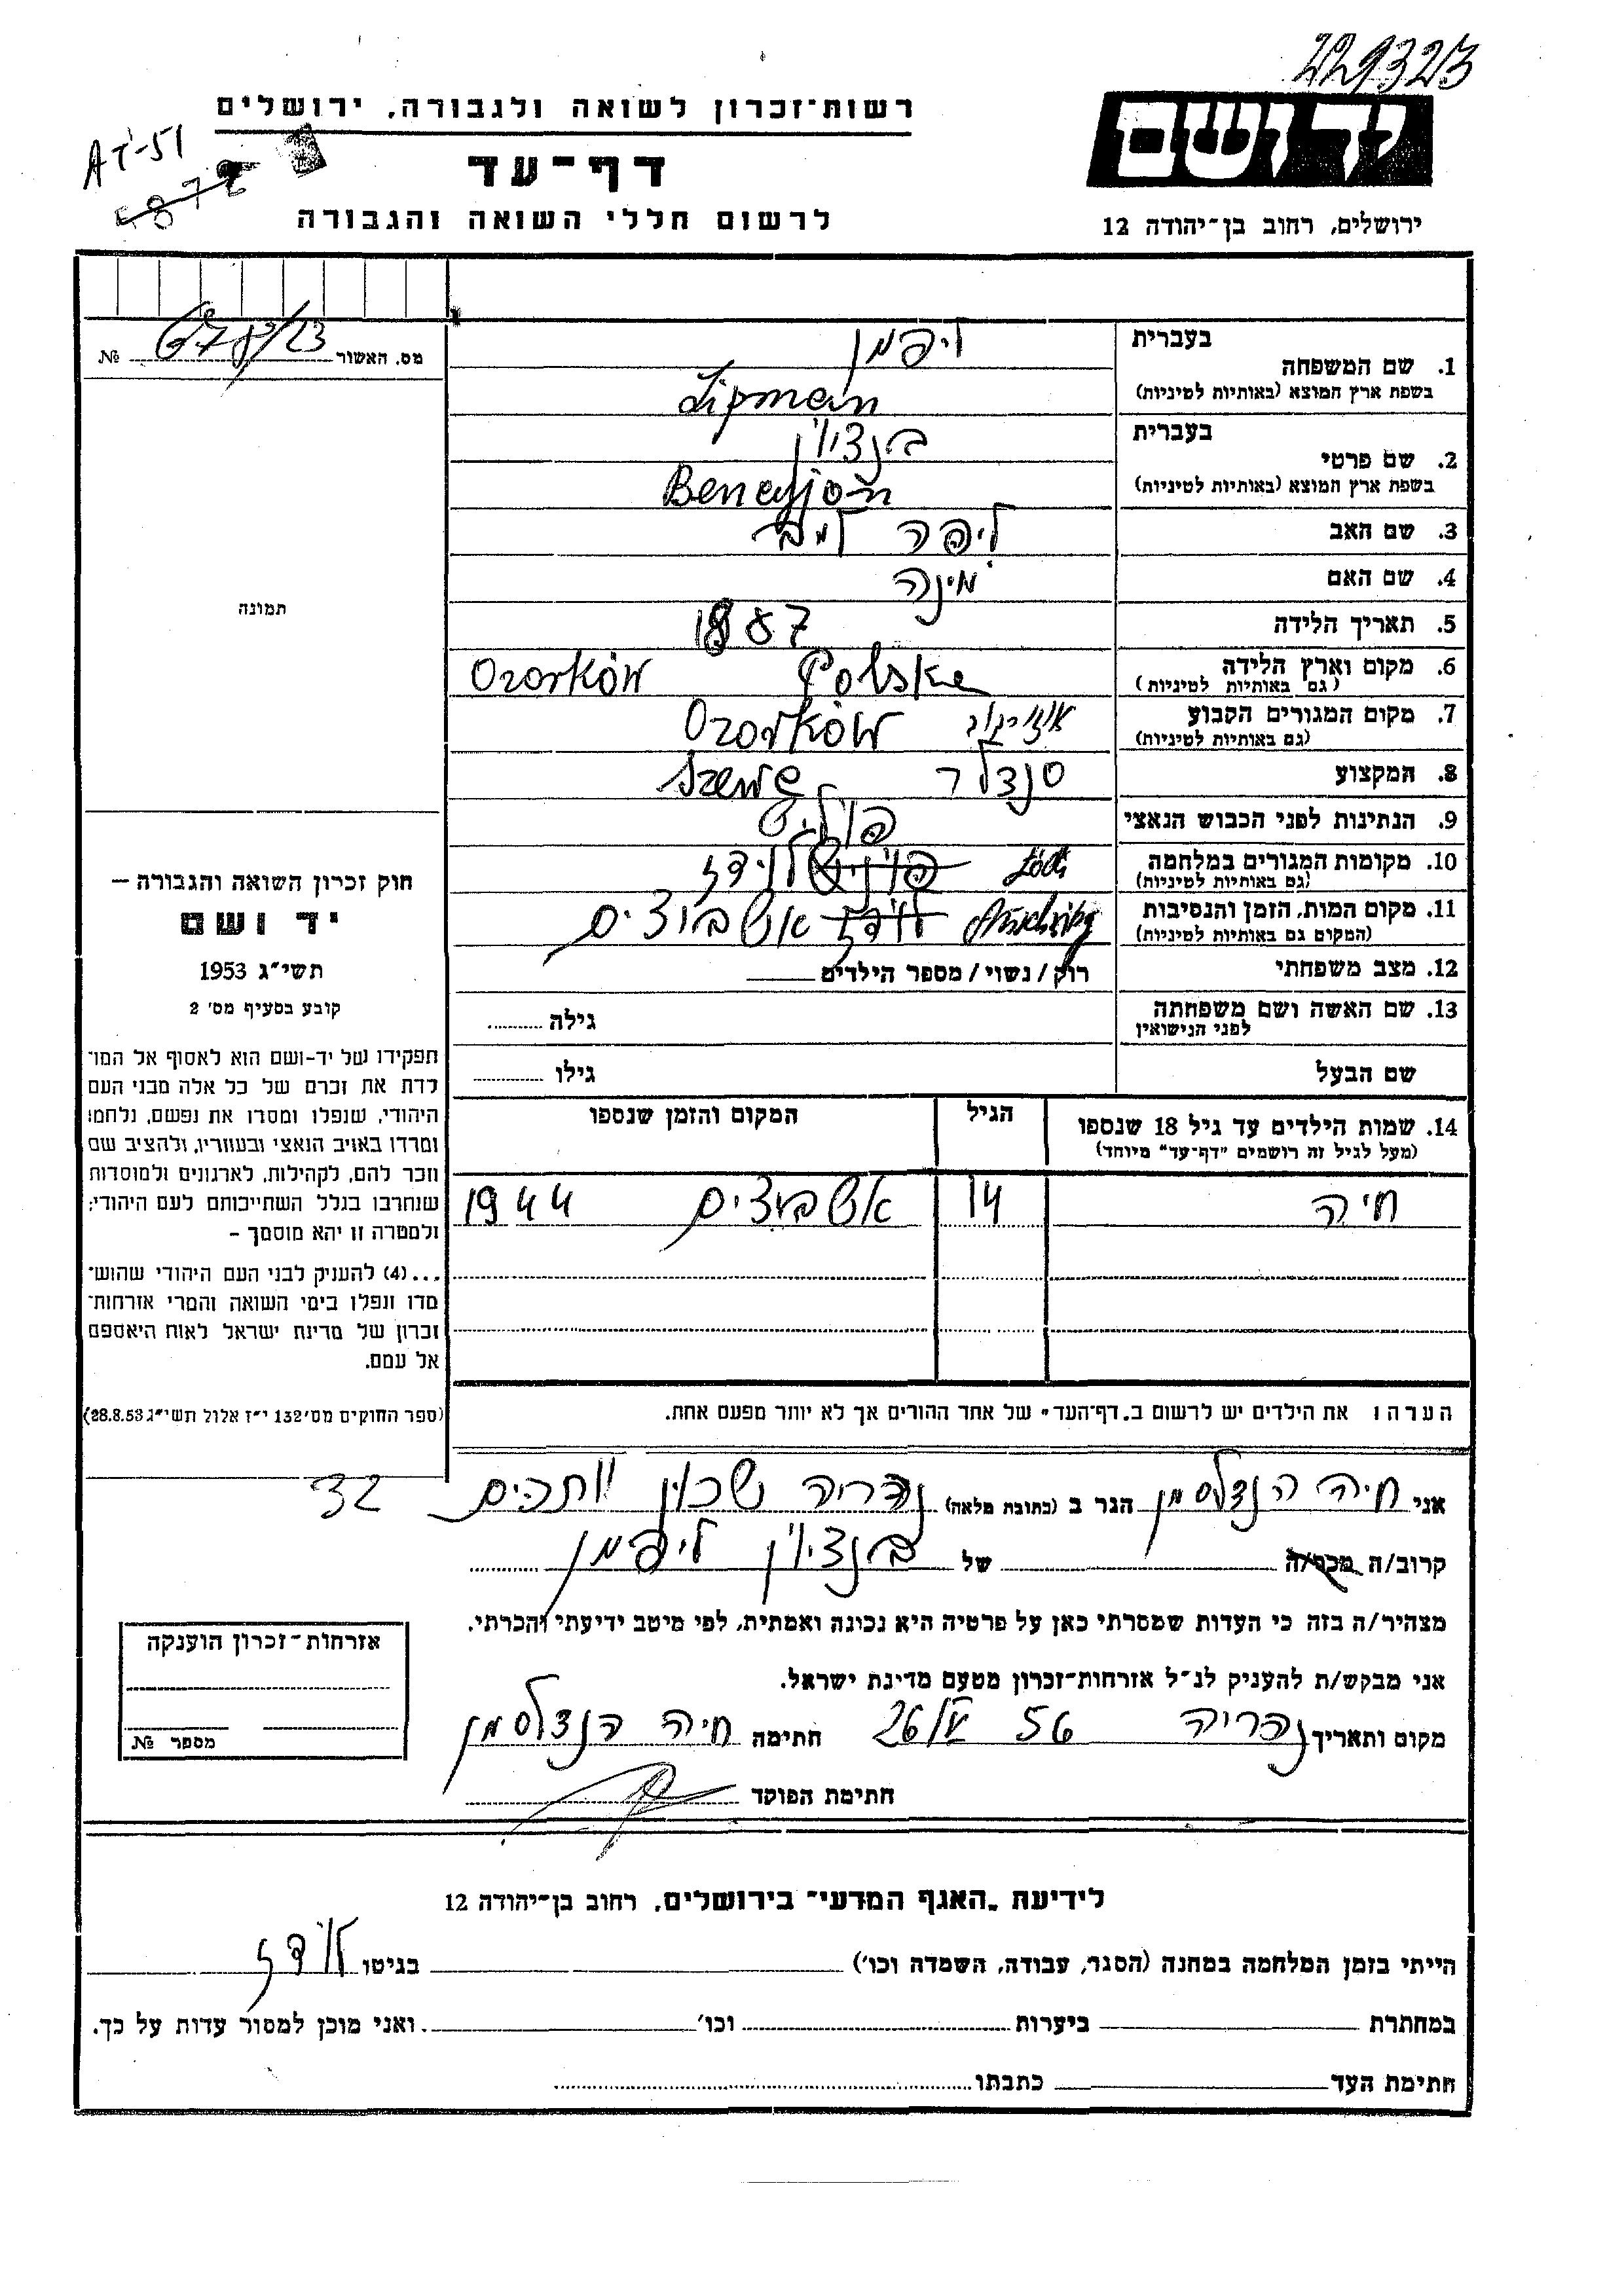 229323
רשות-זכרון לשואה ולגבורה, ירושלים
AT-51
דף-עד
יד ושם
לרשום חללי השואה והגבורה
ירושלים, רחוב בן-יהודה 12
מס. האשור 678/23 №
בעברית
ליפמן
1. שם המשפחה
בשפת ארץ המוצא (באותיות לטיניות) Lipman
בעברית
בנציון
2. שם פרטי
בשפת ארץ המוצא (באותיות לטיניות) Bencyjon
3. שם האב ליפה לייב
4. שם האם מינה
5. תאריך הלידה 1887
6. מקום וארץ הלידה Ozorków Polska
(גם באותיות לטיניות)
7. מקום המגורים הקבוע אוזורקוב Ozorków
(גם באותיות לטיניות)
8. המקצוע סנדלר
9. הנתינות לפני הכבוש הנאצי
10. מקומות המגורים במלחמה Łódź לודז
(גם באותיות לטיניות)
11. מקום המות, הזמן והנסיבות אושביצים
(המקום גם באותיות לטיניות)
12. מצב משפחתי רוק / נשוי / מספר הילדים
13. שם האשה ושם משפחתה גילה
לפני הנישואין
שם הבעל גילו
14. שמות הילדים עד גיל 18 שנספו הגיל המקום והזמן שנספו
(מעל לגיל זה רושמים "דף-עד" מיוחד)
חיה 14 אושביצים 1944
הערה: את הילדים יש לרשום ב"דף-העד" של אחד ההורים אך לא יותר מפעם אחת.
תמונה
חוק זכרון השואה והגבורה –
יד ושם
תשי"ג 1953
קובע בסעיף מס' 2
תפקידו של יד-ושם הוא לאסוף אל המו-
לדת את זכרם של כל אלה מבני העם
היהודי, שנפלו ומסרו את נפשם, נלחמו
ומרדו באויב הנאצי ובעוזריו, ולהציב שם
וזכר להם, לקהילות, לארגונים ולמוסדות
שנחרבו בגלל השתייכותם לעם היהודי;
ולמטרה זו יהא מוסמך –
...(4) להעניק לבני העם היהודי שהוש-
מדו ונפלו בימי השואה והמרי אזרחות-
זכרון של מדינת ישראל לאות היאספם
אל עמם.
(ספר החוקים מס' 132 י"ז אלול תשי"ג 28.8.53)
אני חיה הנדלסמן הגר ב (כתובת מלאה) נהריה שכון ותיקים 32
קרוב/ה מכר/ה של בנציון ליפמן
מצהיר/ה בזה כי העדות שמסרתי כאן על פרטיה היא נכונה ואמתית, לפי מיטב ידיעתי והכרתי.
אני מבקש/ת להעניק לנ"ל אזרחות-זכרון מטעם מדינת ישראל.
מקום ותאריך נהריה 56 חתימה חיה הנדלסמן
חתימת הפוקד
אזרחות-זכרון הוענקה
מספר №
לידיעת "האגף המדעי" בירושלים, רחוב בן-יהודה 12
הייתי בזמן המלחמה במחנה (הסגר, עבודה, השמדה וכו') בגיטו לודז
במחתרת ביערות וכו' ואני מוכן למסור עדות על כך.
חתימת העד כתבתו